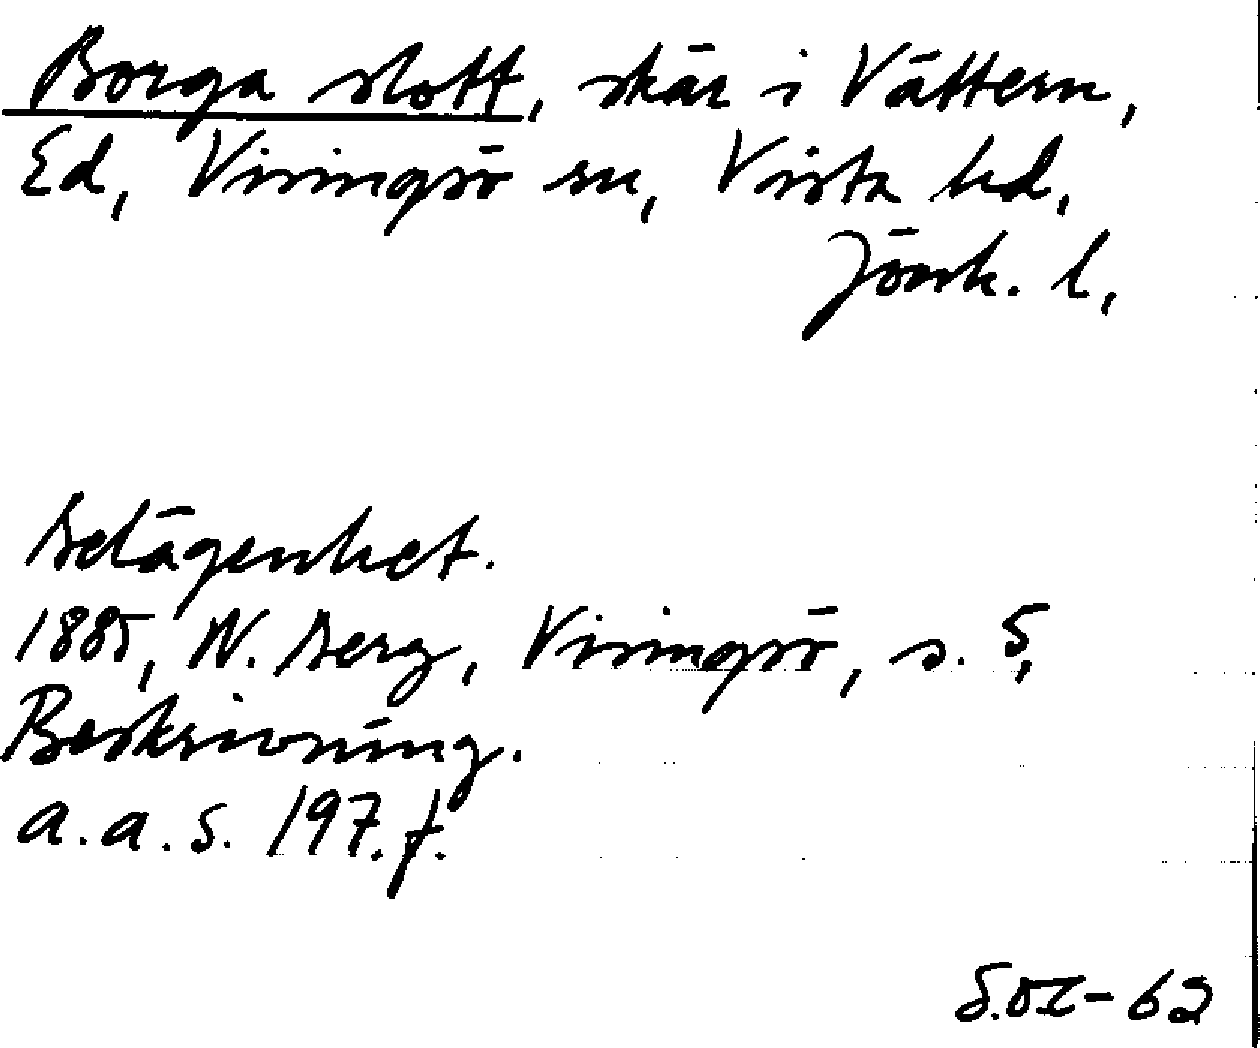 Borga slott, skär i Vättern,
Ed, Visingsö sn, Vista hd,
Jönk. l,
Belägenhet.
1885, W. Berg, Visingsö, s. 5,
Beskrivning.
a.a.s. 197.f.
62